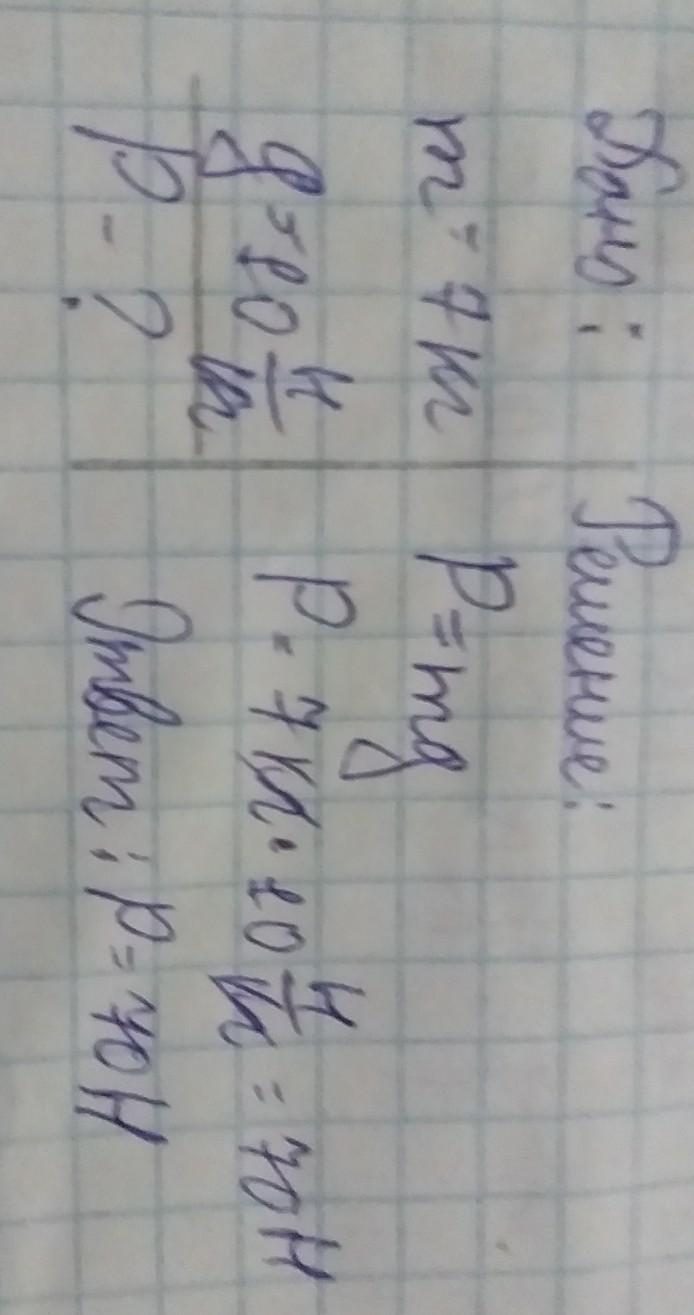 Дано:
m = 7 кг
g = 10 Н/кг
P - ?
Решение:
P = mg
P = 7 кг · 10 Н/кг = 70 Н
Ответ: P = 70 Н